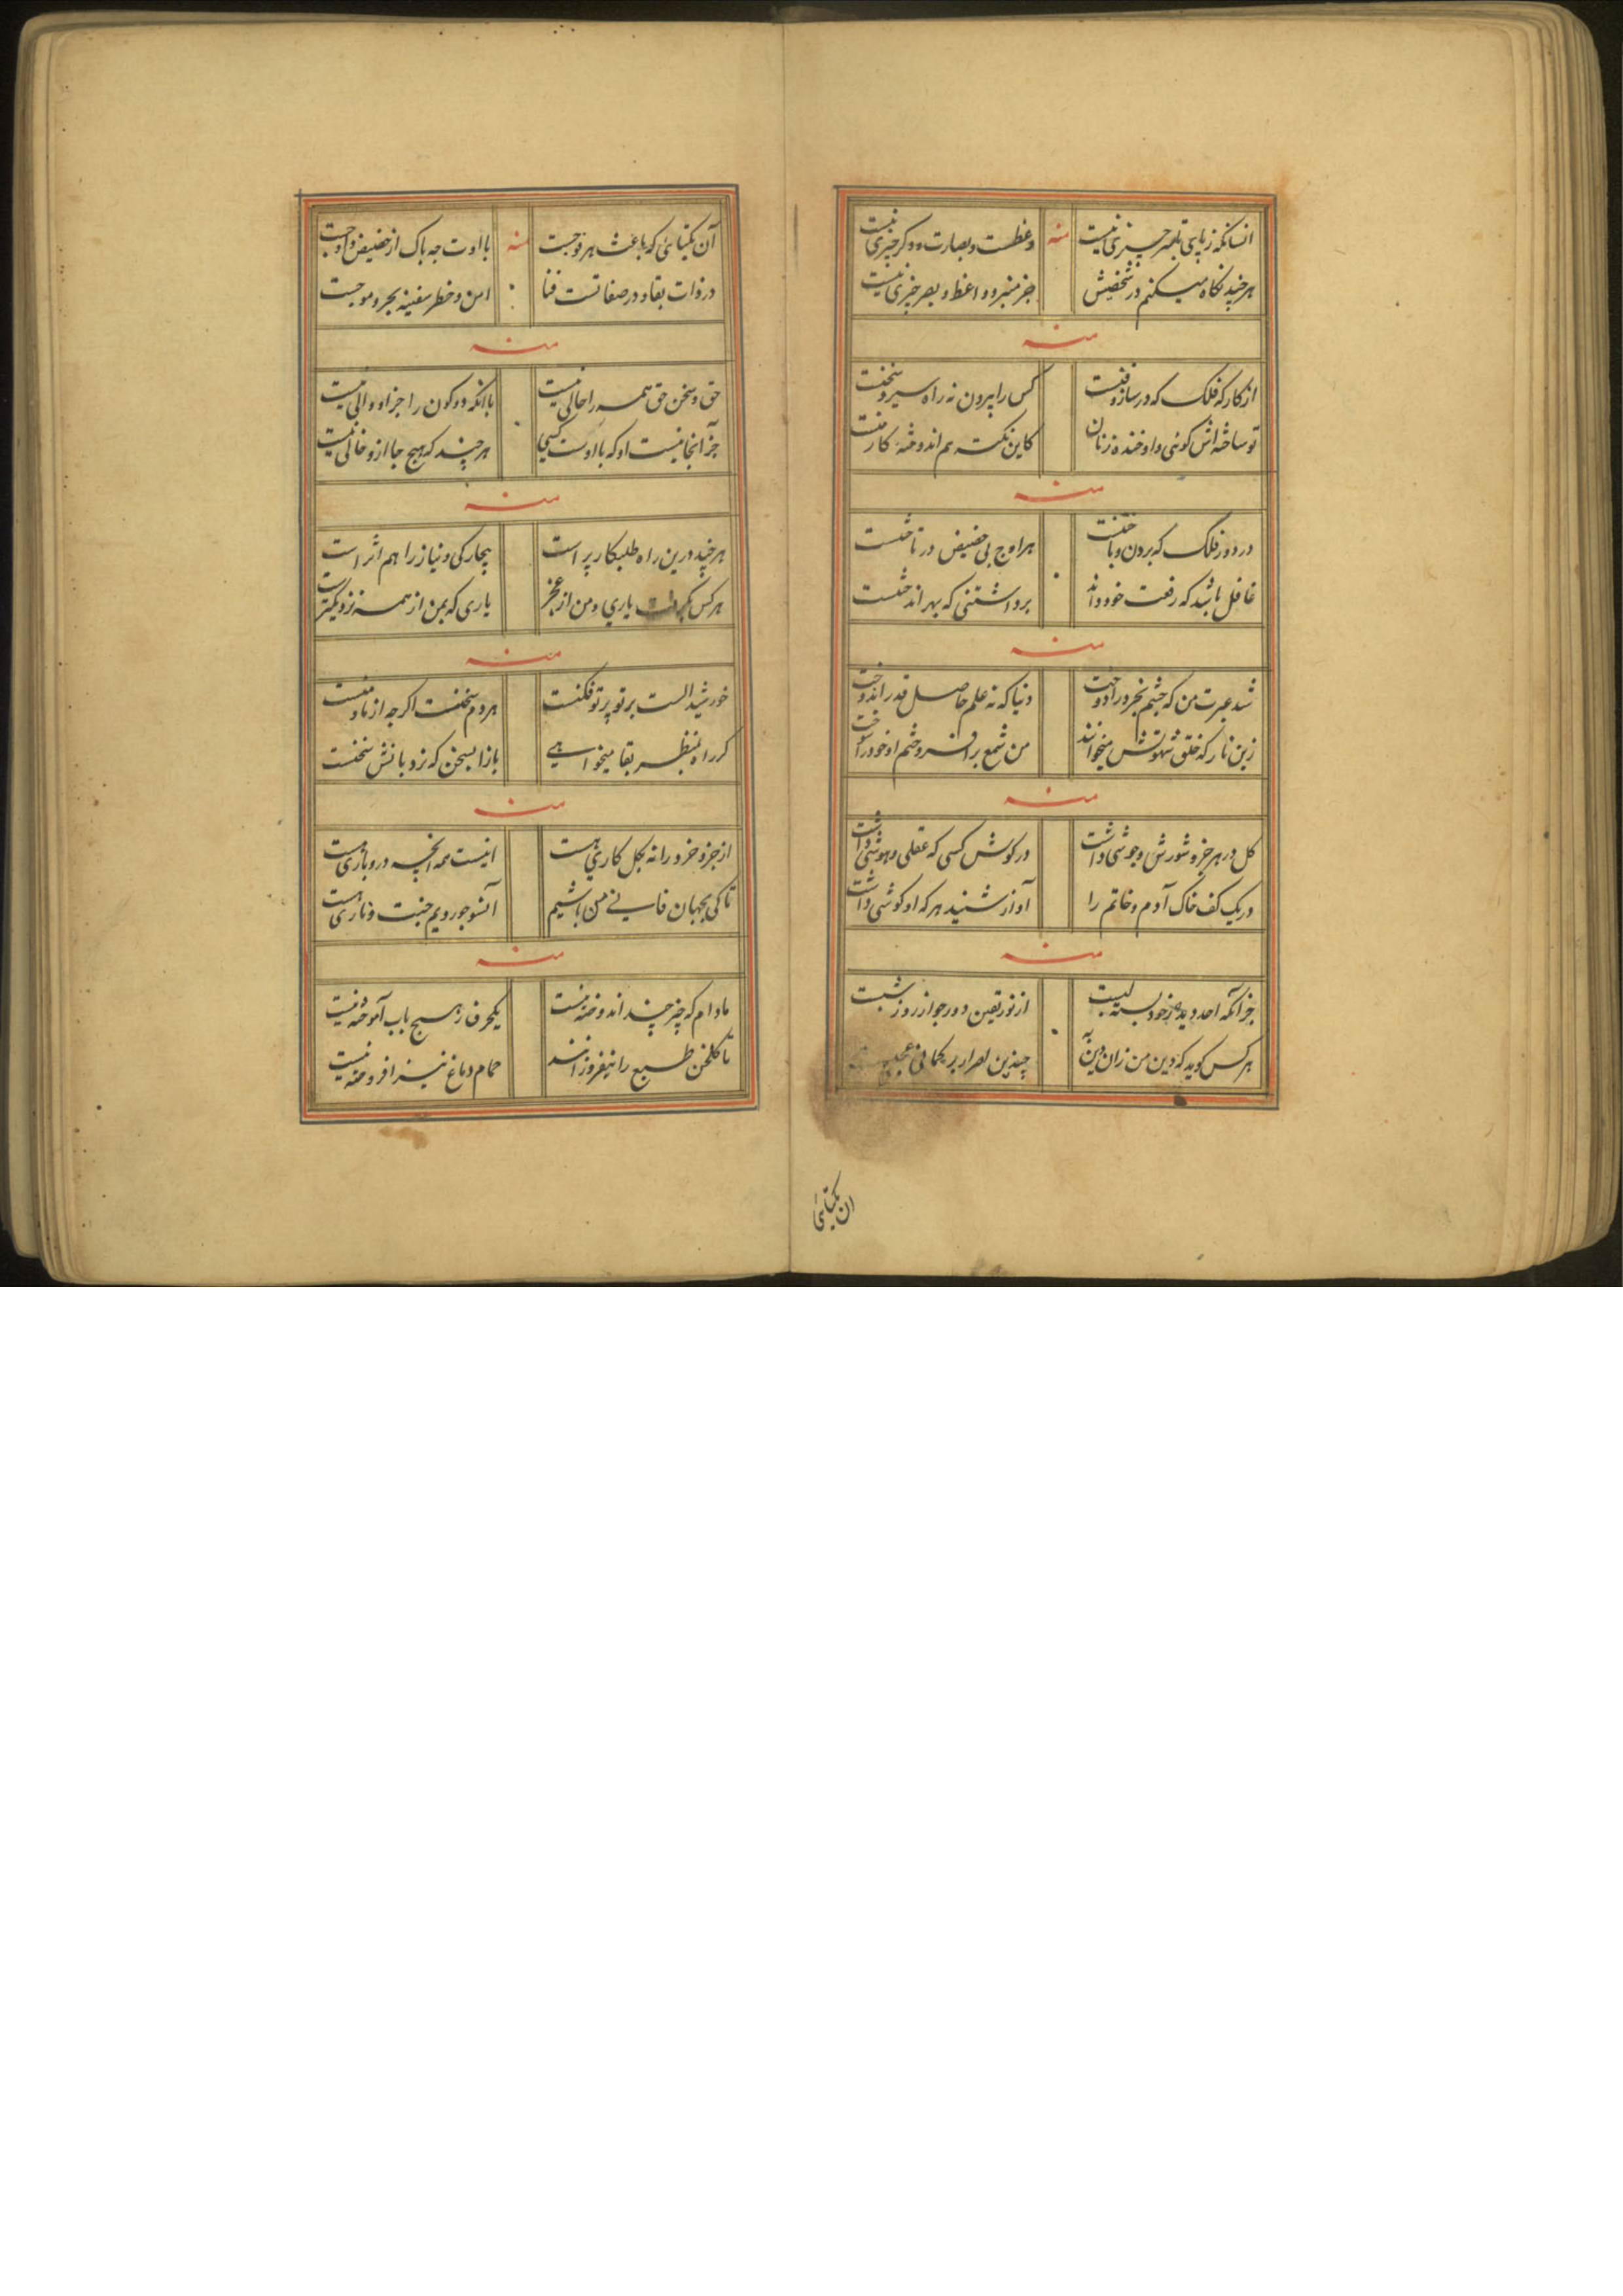 انسانکه ز پای تا بسر چیزی نیست
وعظست و بصارت و دگر چیزی نیست
منه
هر چند نکاه میکنم در شخصیش
جز منبر و واعظ و بصر چیزی نیست
منه
از کارکه فلک که در ساز و فنست
کس را بیرون نه راه سیر و سخنست
تو ساخته اش کوئی و او خنده زنان
کاین نکته هم اندوخته کار منست
منه
در دور فلک که بردن و باختنست
هر اوج پی حضیض در تاختنست
غافل باشد که رفعت خود داند
برداشتنی که بهر انداختنست
منه
شد عبرت من که چشم بخرد را دوخت
دنیا که نه علم حاصل قدر اندوخت
زین نار که خلق شهوتش میخوانند
من شمع برافروختم او خود را سوخت
منه
کل در هر جزو شورش و جوشی داشت
در کوش کسی که عقلی و هوشی داشت
در یک کف خاک آدم و خاتم را
آواز شنید هر که او کوشی داشت
منه
جز آنکه احد دید و ز خود بسته لبست
از نور یقین دور چو از روز شبست
هر کس کوید که دین من زان دین به
چندین اصرار بر کمانی عجبست
ان یکتائی
آن یکتائی که باعث هر توجست
با اوت چه باک از حضیض و اوجست
منه
در ذات بقا و در صفاتست فنا
امن و خطر سفینه بحر و موجست
منه
حق و سخن حق همه را حالی نیست
با آنکه دو کون را جز او والی نیست
جز آنجا نیست او که با اوست کسی
هر چند که هیچ جا ازو خالی نیست
منه
هر چند درین راه طلبکار پر است
بیچارکی و نیاز را هم اثر است
هر کس یاری و من از عجز
یاری که بمن از همه نزدیکتر است
منه
خورشید الست بر تو پرتو فکنست
هر دم سخنست اکر چه از ما و منست
کر راه بمنظر بقا میخواهی
باز آ بسخن که نردبانش سخنست
منه
از جزو خرد را نه بکل کاری هست
اینست همه آنچه درو باری هست
تا کی بجهان فانی من باشیم
آنسو چو رویم جنت و ناری هست
منه
مادام که چیز چند اندوخته نیست
یکحرف ز هیچ باب آموخته نیست
تا کلخن طبع را نیفروزانند
حمام دماغ نیز افروخته نیست